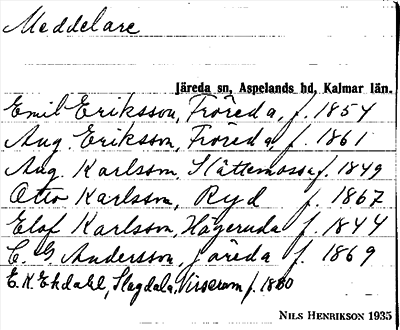 Meddelare
Järeda sn, Aspelands hd, Kalmar län.
Emil Eriksson, Fröreda, f. 1854
Aug. Eriksson, Fröreda f. 1861
Aug. Karlsson, Slättemossa f. 1849
Otto Karlsson, Ryd f. 1867
Elof Karlsson, Högeruda f. 1844
C. G. Andersson, Järeda f. 1869
E. K. Ekdahl, Slagdala, Virserum f. 1880
NILS HENRIKSON 1935